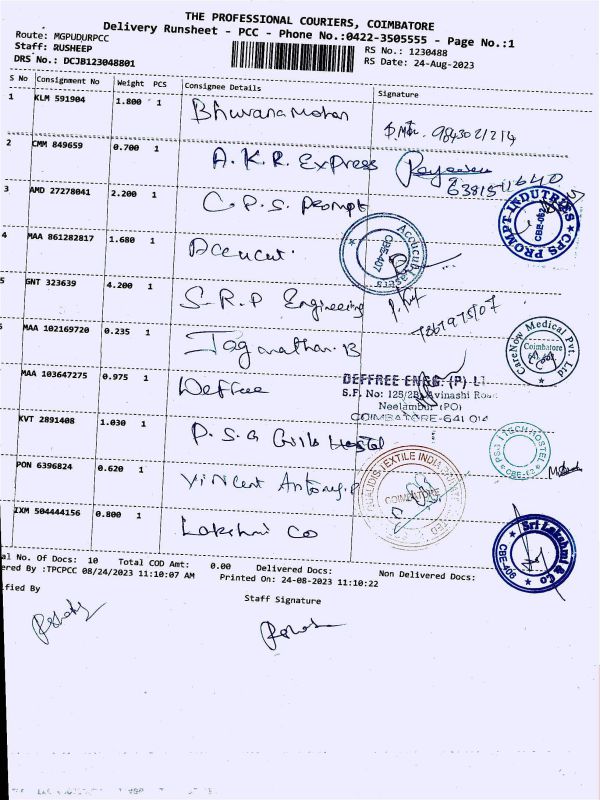 THE PROFESSIONAL COURIERS, COIMBATORE
Delivery Runsheet - PCC - Phone No.:0422-3505555 - Page No.:1
Route: MGPUDURPCC
RS No.: 1230488
Staff: RUSHEEP
RS Date: 24-Aug-2023
DRS No.: DCJB123048801
S No Consignment No Weight PCS Consignee Details Signature
1 KLM 591904 1.800 1 Bhuvana Mohan
9843021214
2 CMM 849659 0.700 1 A.K.R. Express
3 AMD 27278041 2.200 1 C.P.S. Prompt
CPS PROMPT INDUTRIES
4 MAA 861282817 1.680 1 Accucut
Accucut Lasers
CBE-407
GNT 323639 4.200 1 S.R.P Engineering
MAA 102169720 0.235 1 Jaganathan.B
CareNow Medical Pvt. Ltd
Coimbatore
MAA 103647275 0.975 1 Deffree
DEFFREE ENGG. (P) LT
S.F. No: 125/2B, Avinashi Road
Neelambur (PO)
COIMBATORE-641 014
KVT 2891408 1.030 1 P.S.G Girls Hostel
PON 6396824 0.620 1 Vincent Antony.P
TEXTILE INDIA
COIMBATORE
IXM 504444156 0.800 1 Lakshmi Co
Sri Lakshmi & Co
CBE-406
al No. Of Docs: 10 Total COD Amt: 0.00 Delivered Docs: Non Delivered Docs:
ered By :TPCPCC 08/24/2023 11:10:07 AM Printed On: 24-08-2023 11:10:22
ified By Staff Signature